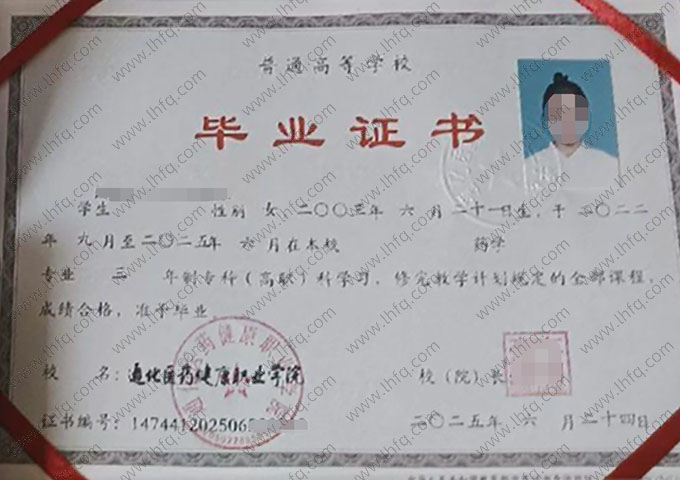 普通高等学校
毕业证书
学生 性别 女 二〇〇三年 六 月 二十一日生，于 二〇二二
年 九 月至二〇二五年 六 月在本校 药学
专业 三 年制专科（高职）科学习，修完教学计划规定的全部课程，
成绩合格，准予毕业。
校 名：通化医药健康职业学院 校（院）长
证书编号：147441202506 二〇二五年 六 月二十四日
www.lhfq.com